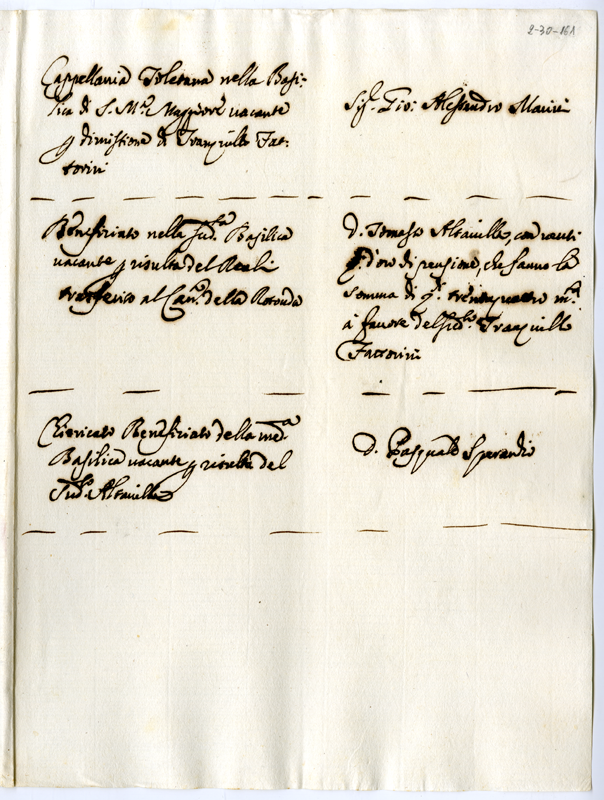 2-30-161
Cappellania Toletana nella Basi:
lica di S. M.ª Maggiore vacante
p dimissione di Tranquillo Fat:
torini
Sig.r Gio: Alessandro Macin
Benefiziato nella sud.ª Basilica
vacante p risulta del Reali
trasferito al Can.to della Rotonda
D. Tomaso Altavilla, con venti
d'oro di pensione, che fanno la
somma di trentaquattro m.ta
à favore del sud.to Tranquillo
Fattorini
Chiericato Benefiziato della med.ª
Basilica vacante p risulta del
Sud.to Altavilla
D. Pasquale Sperandio